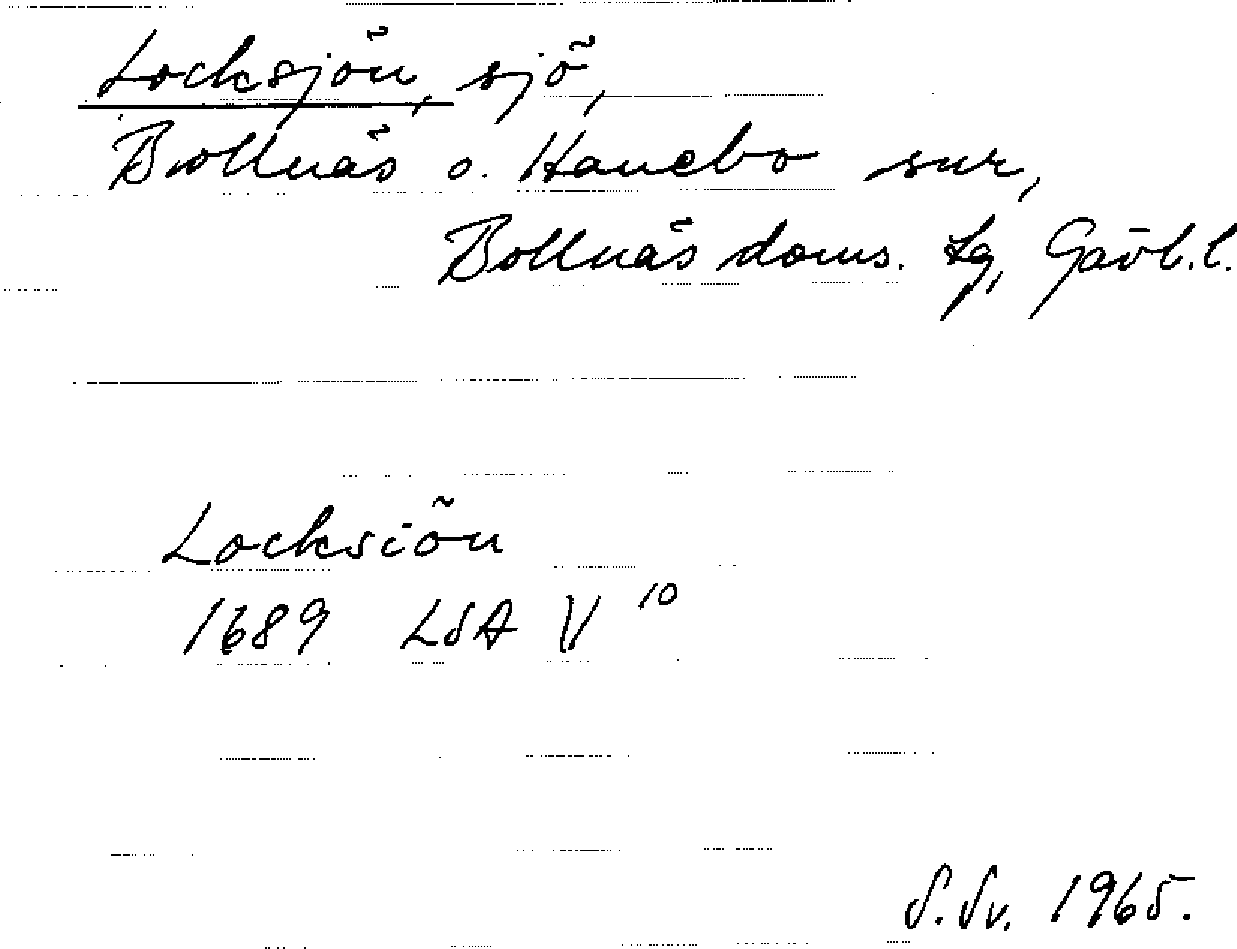 Locksjön, sjö,
Bollnäs o. Hanebo snr,
Bollnäs doms. lg, Gävl.l.
Locksiön
1689 LSA V 10
S.Sv. 1965.